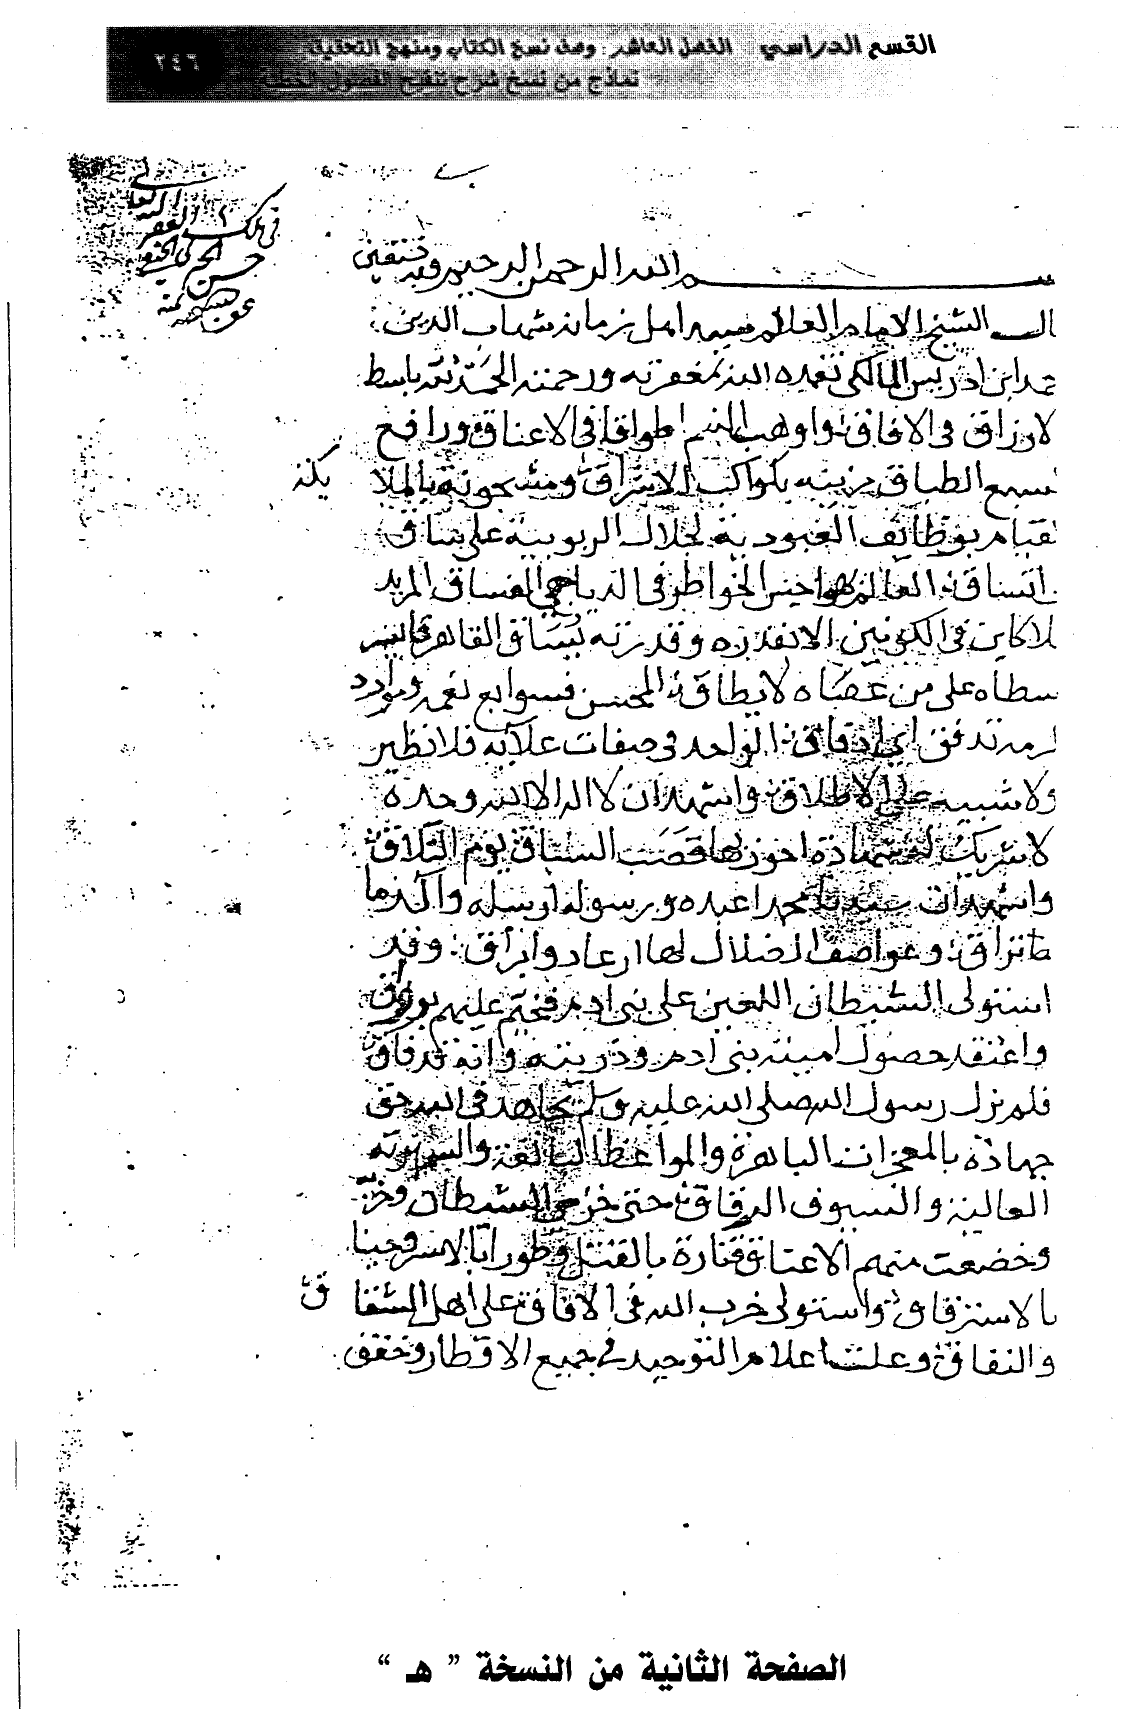 القسم الدراسي الفصل العاشر : وصف نسخ الكتاب ومنهج التحقيق
نماذج من نسخ شرح تنقيح الفصول الخطية
٢٤٦
في ملك الفقير
حسن
عفي عنه
بسم الله الرحمن الرحيم وبه ثقتي
ال الشيخ الامام العالم اهل زمانه شهاب الدين
حمد ابن ادريس المالكي تغمده الله بمغفرته ورحمته الحمد لله باسط
لارزاق في الافاق وواهب النعم اطواقا في الاعناق ورافع
لسبع الطباق مزينة بكواكب الاشراق ومشحونة بالملا
يكة
لقيام بوظائف العبودية لجلال الربوبية على ساق
اتساق العالم بهواجس الخواطر في الدياجي الغساق المريد
لا كاين في الكونين الا بقدره وقدرته يساق القاهر
سطاه على من عصاه لا يطاق المحسن فسوابغ نعمه وموارد
رمه تدفق اي ادفاق الواحد في صفات علائه فلا نظير
ولا شبيه على الاطلاق واشهد ان لا اله الا الله وحده
لا شريك له شهادة احوز بها قصب السباق يوم التلاق
واشهد ان سيدنا محمدا عبده ورسوله ارسله والدما
تراق وعواصف الضلال لها ارعاد وابراق وقد
استولى الشيطان اللعين على بني ادم فختم عليهم
واعتقد حصول امنيته بني ادم وذريته وانه قد فاق
فلم يزل رسول الله صلى الله عليه وسلم يجاهد في الله حق
جهاده بالمعجزات الباهرة والمواعظ البالغة
العالية والسيوف الرقاق حتى خزي الشيطان
وخضعت منهم الاعناق فتارة بالقتل وطورا بالاسر وحينا
بالاسترقاق واستولى حزب الله في الافاق على اهل الشقا
ق
والنفاق وعلت اعلام التوحيد في جميع الاقطار وخفق
الصفحة الثانية من النسخة " هـ "